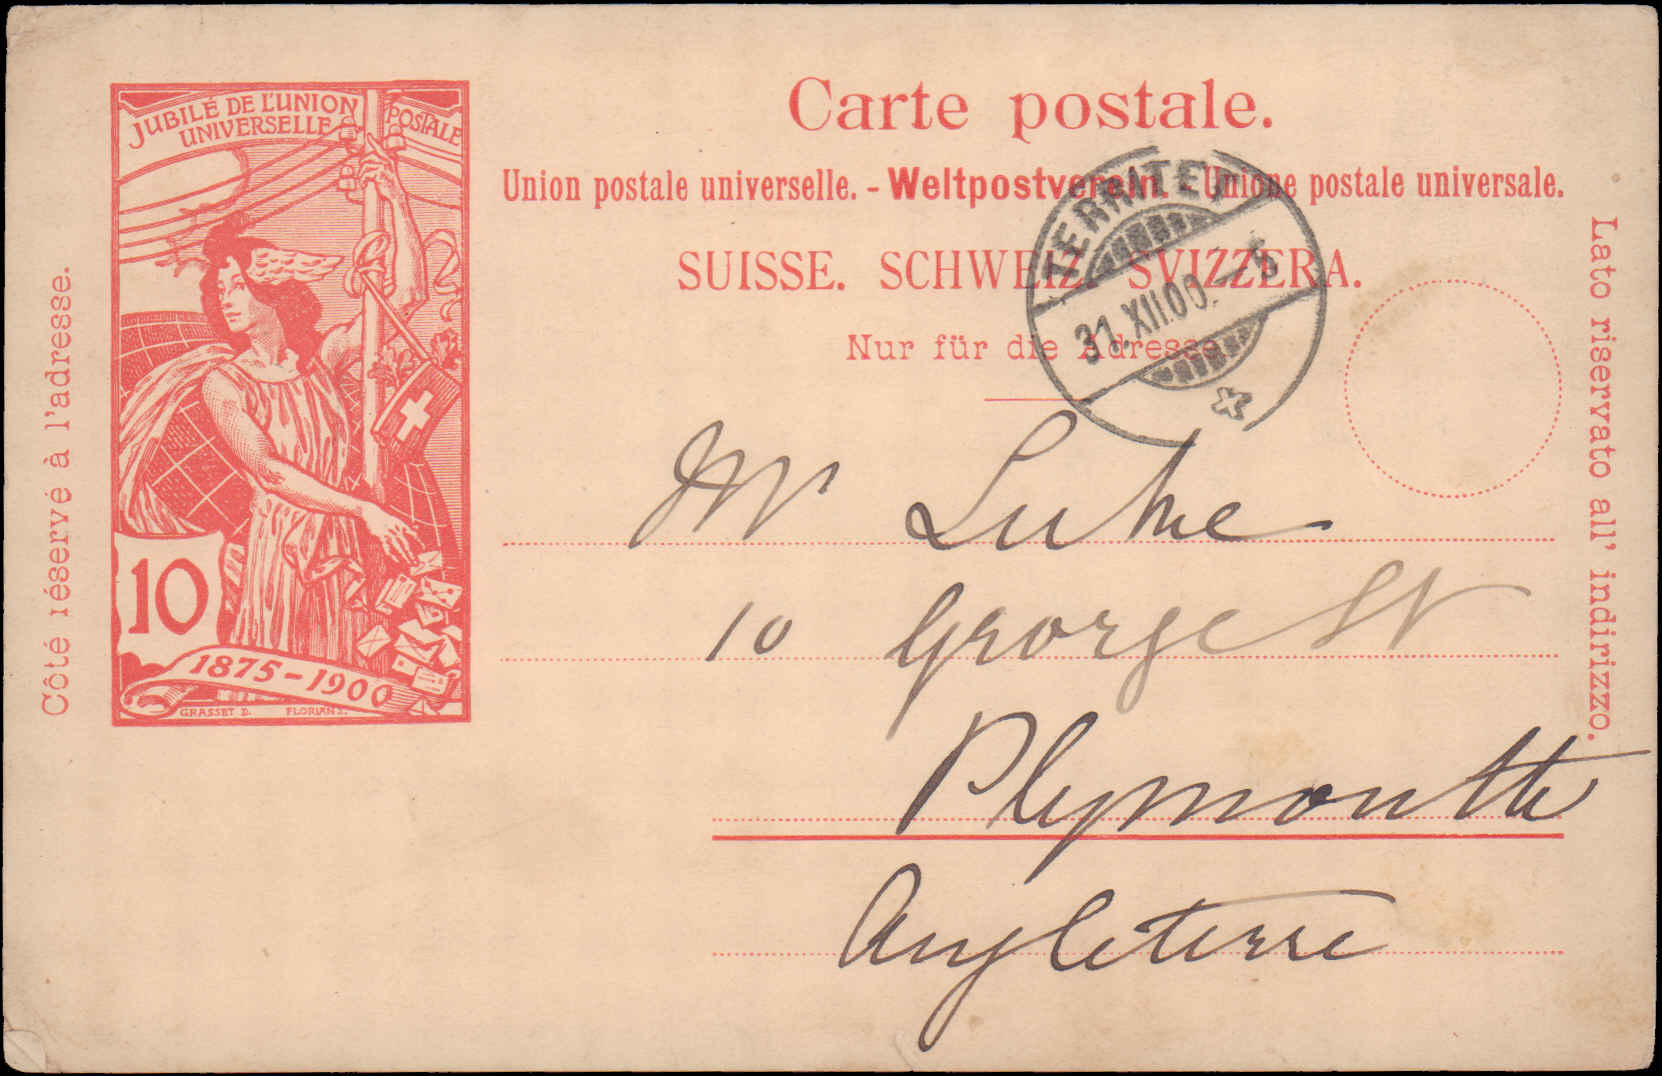 JUBILÉ DE L'UNION POSTALE
UNIVERSELLE
10
1875-1900
GRASSET D. FLORIAN S.
Côté réservé à l'adresse.
Carte postale.
Union postale universelle. - Weltpostverein. - Unione postale universale.
SUISSE. SCHWEIZ. SVIZZERA.
Nur für die Adresse.
TERRITET
31.XII.00.-5
Lato riservato all' indirizzo.
Mr Luke
10 George St
Plymouth
Angleterre